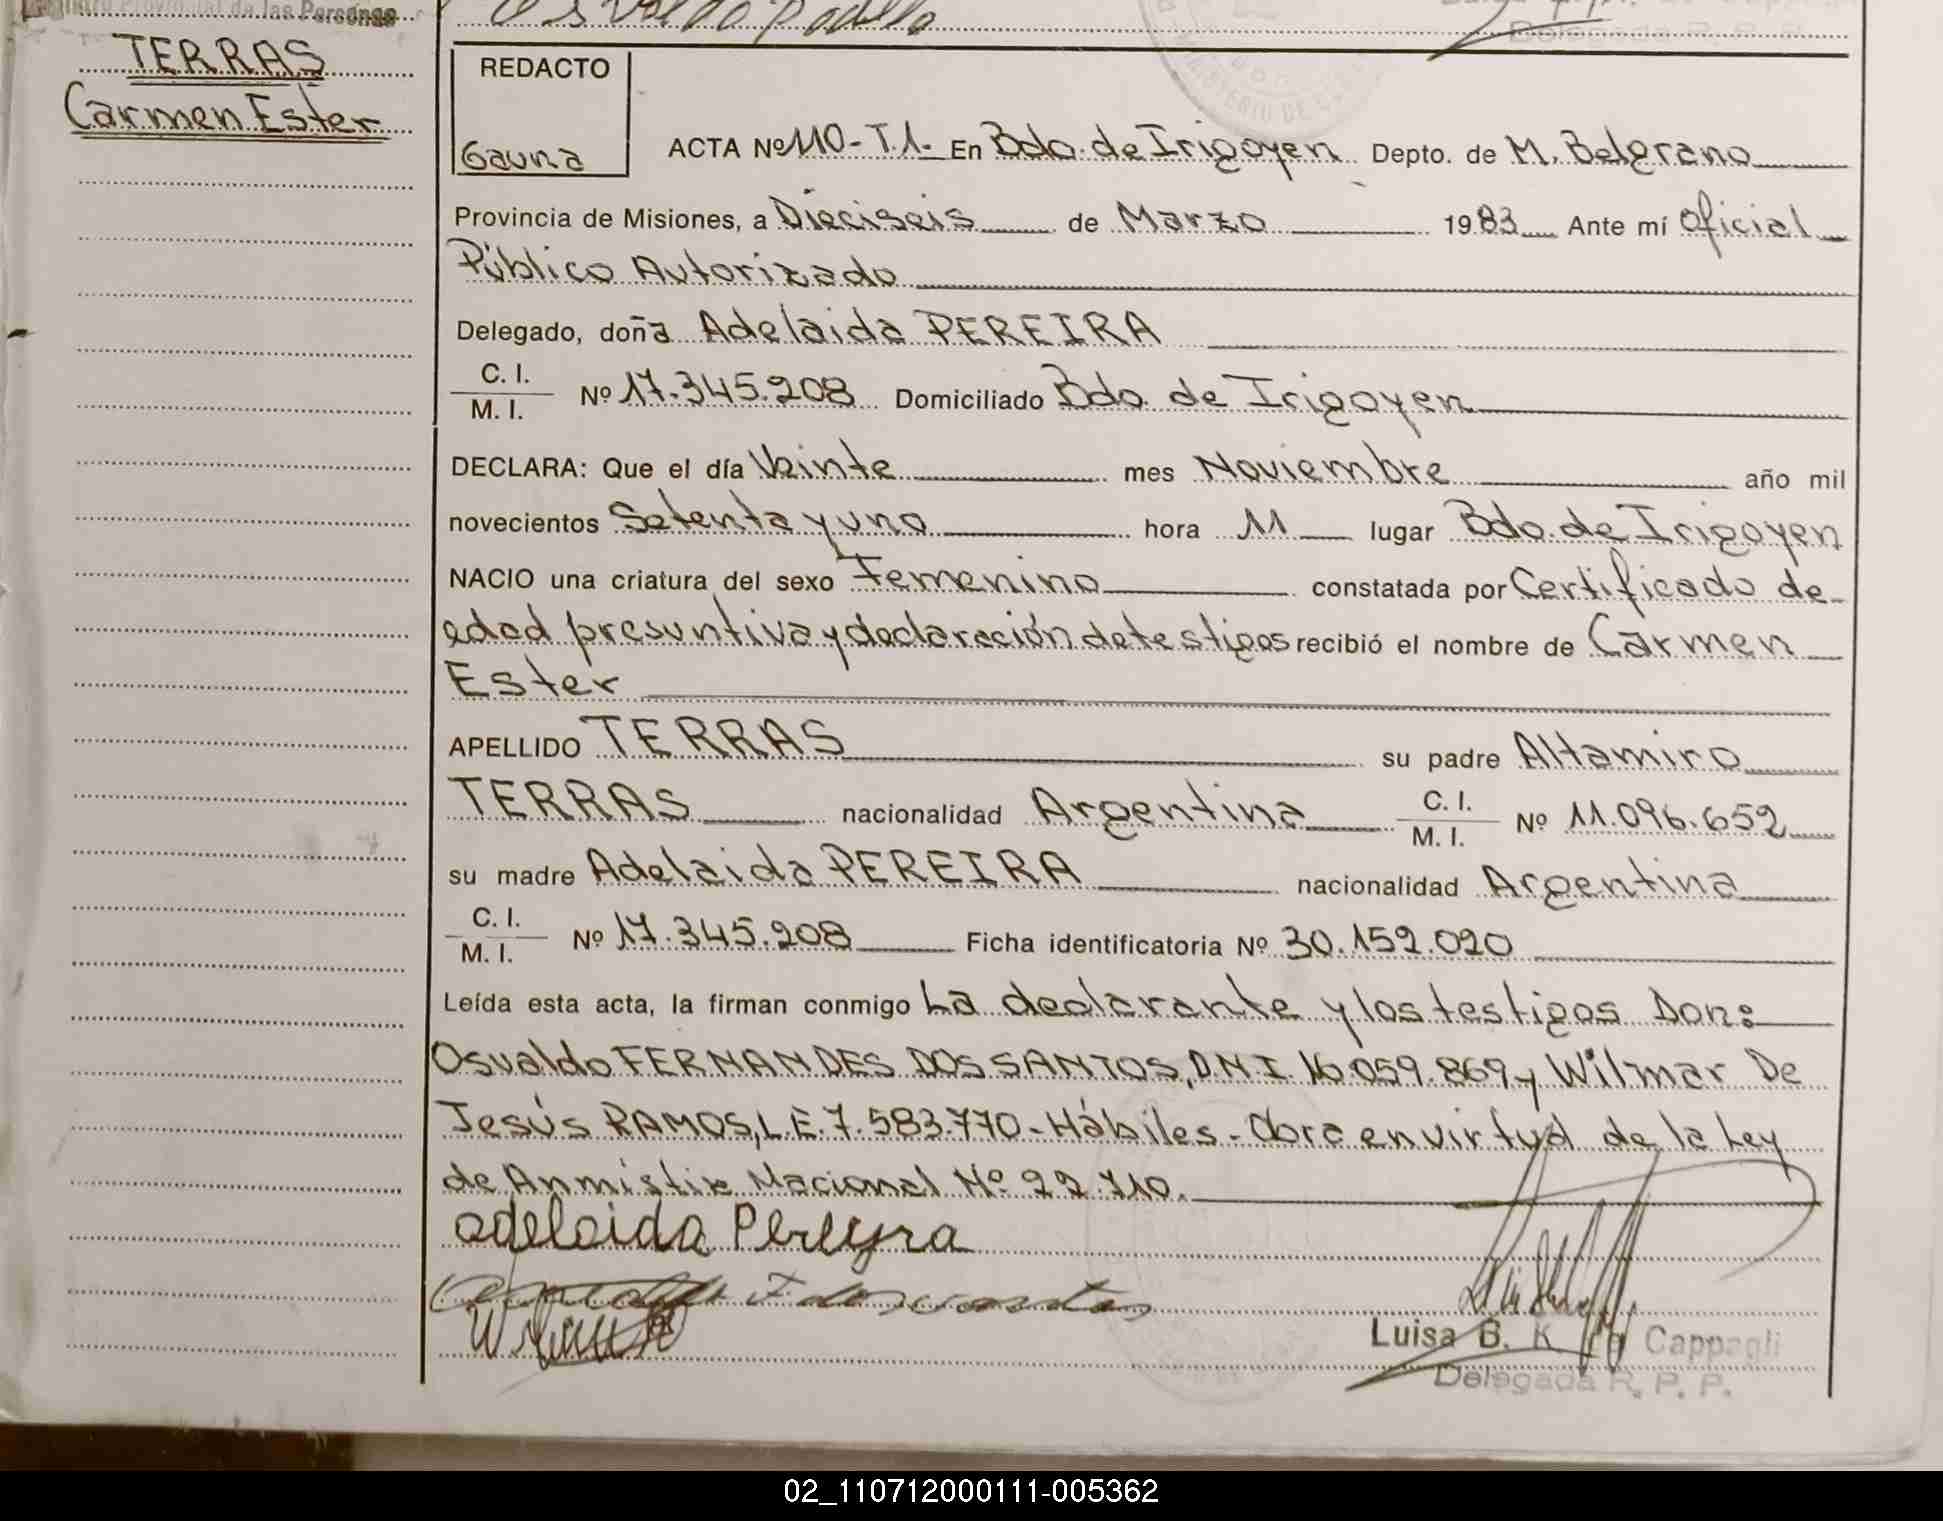 Registro Provincial de las Personas
TERRAS
Carmen Ester
REDACTO
Gauna
ACTA Nº 110-T.1.- En Bdo. de Irigoyen Depto. de M. Belgrano
Provincia de Misiones, a Dieciseis de Marzo 1983 Ante mí Oficial
Público Autorizado
Delegado, doña Adelaida PEREIRA
C. I.
M. I. Nº 17.345.208 Domiciliado Bdo. de Irigoyen
DECLARA: Que el día Veinte mes Noviembre año mil
novecientos Setenta y uno hora 11 lugar Bdo. de Irigoyen
NACIO una criatura del sexo Femenino constatada por Certificado de
edad presuntiva y declaración de testigos recibió el nombre de Carmen
Ester
APELLIDO TERRAS su padre Altamiro
TERRAS nacionalidad Argentina C. I. M. I. Nº 11.096.652
su madre Adelaida PEREIRA nacionalidad Argentina
C. I.
M. I. Nº 17.345.208 Ficha identificatoria Nº 30.152.020
Leída esta acta, la firman conmigo La declarante y los testigos Don:
Osvaldo FERNANDES DOS SANTOS, D.N.I. 16.059.869 y Wilmar De
Jesús RAMOS, L.E. 7.583.770 - Hábiles - Obra en virtud de la Ley
de Anmistia Nacional Nº 22.710.
adelaida Pereyra
Luisa B. K de Cappagli
Delegada R. P. P.
02_110712000111-005362